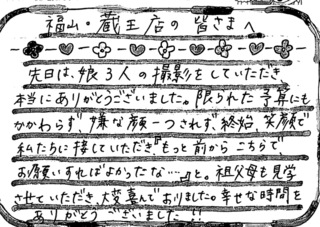 福山・蔵王店の 皆さまへ
先日は、娘3人の撮影をしていただき
本当にありがとうございました。限られた予算にも
かかわらず、嫌な顔一つされず、終始、笑顔で
私たちに接していただき『もっと前からこちらで
お願いすればよかったな…』と。祖父母も見学
させていただき、大変喜んでおりました。幸せな時間を
ありがとうございました!!